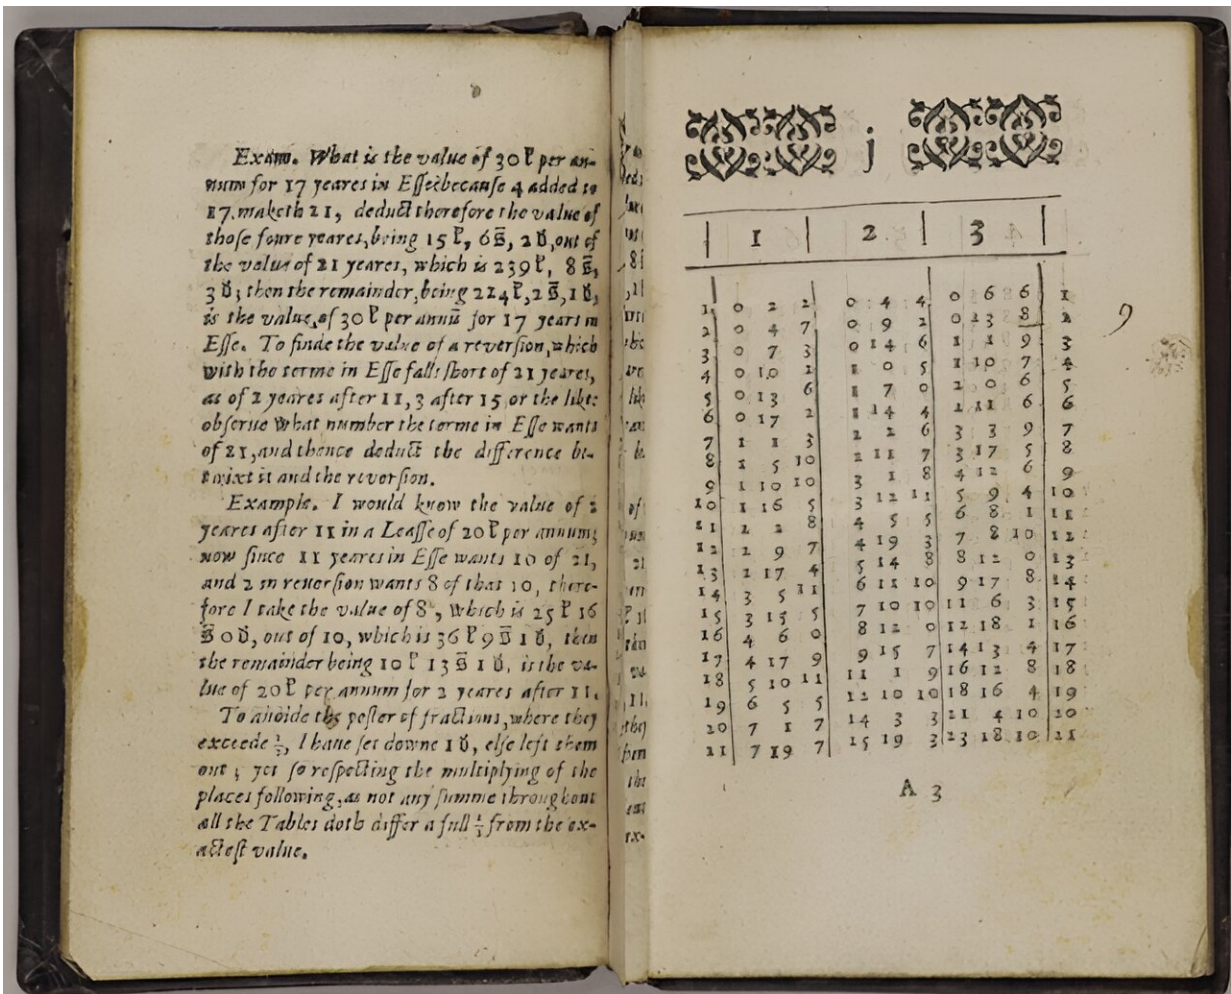 Exam. What is the value of 30 l̃ per an-
num for 17 yeares in Eſſe: becauſe 4 added to
17. maketh 21, deduct therefore the value of
thoſe foure yeares, being 15 l̃, 6 s̃, 2 d̃, out of
the value of 21 yeares, which is 239 l̃, 8 s̃,
3 d̃; then the remainder, being 224 l̃, 2 s̃, 1 d̃,
is the value, of 30 l̃ per annū for 17 years in
Eſſe. To finde the value of a reverſion, which
with the terme in Eſſe falls ſhort of 21 yeares,
as of 2 yeares after 11, 3 after 15, or the like:
obſerue what number the terme in Eſſe wants
of 21, and thence deduct the difference be-
twixt it and the reverſion.
Example. I would know the value of 2
yeares after 11 in a Leaſſe of 20 l̃ per annum;
now ſince 11 yeares in Eſſe wants 10 of 21,
and 2 in reuerſion wants 8 of that 10, there-
fore I take the value of 8, which is 25 l̃ 16
s̃ 0 d̃, out of 10, which is 36 l̃ 9 s̃ 1 d̃, then
the remainder being 10 l̃ 13 s̃ 1 d̃, is the va-
lue of 20 l̃ per annum for 2 yeares after 11.
To auoide the peſter of fractions, where they
exceede ½, I haue ſet downe 1 d̃, elſe left them
out; yet ſo reſpecting the multiplying of the
places following, as not any ſumme throughout
all the Tables doth differ a full ½ from the ex-
acteſt value.
j
1 2 3
1 0 2 2 0 4 4 0 6 6 1
2 0 4 7 0 9 2 0 13 8 2
3 0 7 3 0 14 6 1 1 9 3
4 0 10 2 1 0 5 1 10 7 4
5 0 13 6 1 7 0 2 0 6 5
6 0 17 2 1 14 4 2 11 6 6
7 1 1 3 2 2 6 3 3 9 7
8 1 5 10 2 11 7 3 17 5 8
9 1 10 10 3 1 8 4 12 6 9
10 1 16 5 3 12 11 5 9 4 10
11 2 2 8 4 5 5 6 8 1 11
12 2 9 7 4 19 3 7 8 10 12
13 2 17 4 5 14 8 8 12 0 13
14 3 5 11 6 11 10 9 17 8 14
15 3 15 5 7 10 10 11 6 3 15
16 4 6 0 8 12 0 12 18 1 16
17 4 17 9 9 15 7 14 13 4 17
18 5 10 11 11 1 9 16 12 8 18
19 6 5 5 12 10 10 18 16 4 19
20 7 1 7 14 3 3 21 4 10 20
21 7 19 7 15 19 3 23 18 10 21
A 3
9